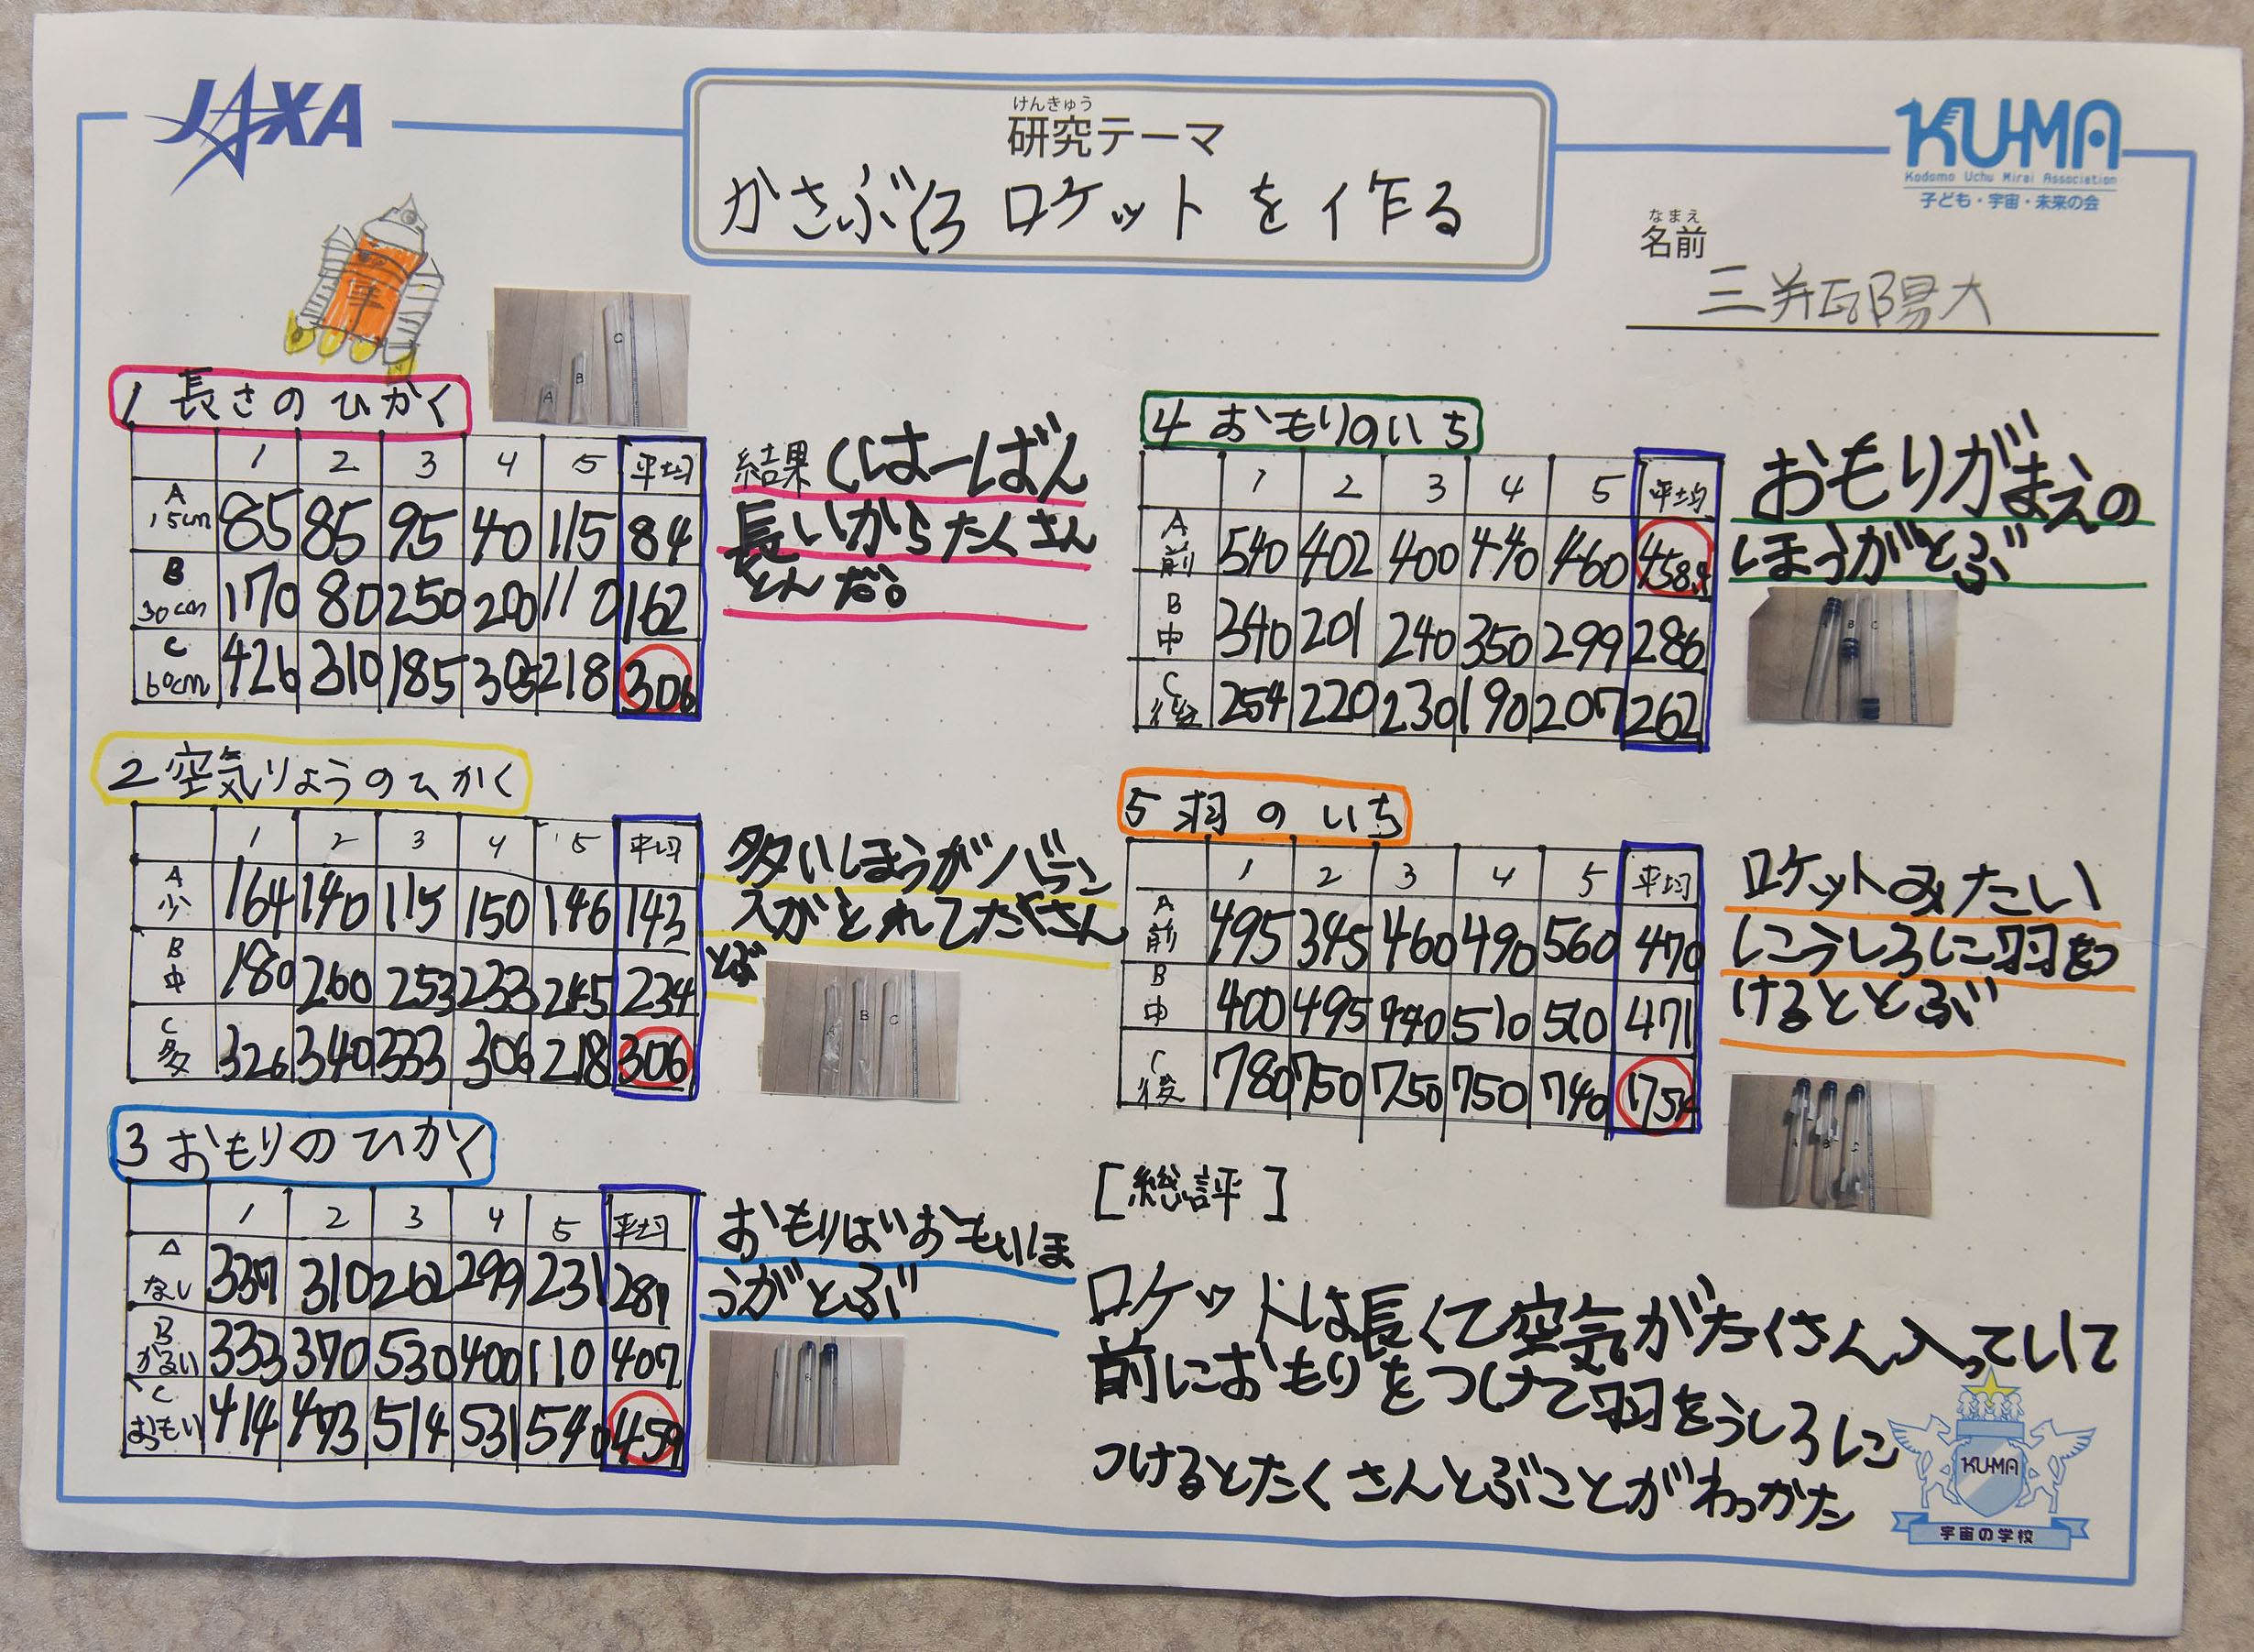 JAXA
けんきゅう
研究テーマ
かさぶくろ ロケットを作る
KU-MA
Kodomo Uchu Mirai Association
子ども・宇宙・未来の会
なまえ
名前
三井瓦陽大
1 長さのひかく
A B C
1 2 3 4 5 平均
A 15cm 85 85 95 40 115 84
B 30cm 170 80 250 200 110 162
C 60cm 426 310 185 305 218 306
結果 Cは一ばん
長いからたくさん
とんだ。
2 空気りょうのひかく
1 2 3 4 5 平均
A 少 164 140 115 150 146 143
B 中 180 260 253 233 245 234
C 多 326 340 333 306 218 306
多いほうがバラン
スがとれてたくさん
とぶ
A B C
3 おもりのひかく
1 2 3 4 5 平均
A なし 337 310 262 299 231 287
B かるい 333 370 530 400 110 407
C おもい 414 473 514 531 540 459
おもりはおもいほ
うがとぶ
4 おもりのいち
1 2 3 4 5 平均
A 前 540 402 400 440 460 458.4
B 中 340 201 240 350 299 286
C 後 254 220 230 190 207 262
おもりがまえの
ほうがとぶ
A B C
5 羽のいち
1 2 3 4 5 平均
A 前 495 345 460 490 560 470
B 中 400 495 440 510 510 471
C 後 780 750 750 750 740 754
ロケットみたい
にうしろに羽をつ
けるととぶ
A B C
[総評]
ロケットは長くて空気がたくさん入っていて
前におもりをつけて羽をうしろに
つけるとたくさんとぶことがわっかた
KU-MA
宇宙の学校